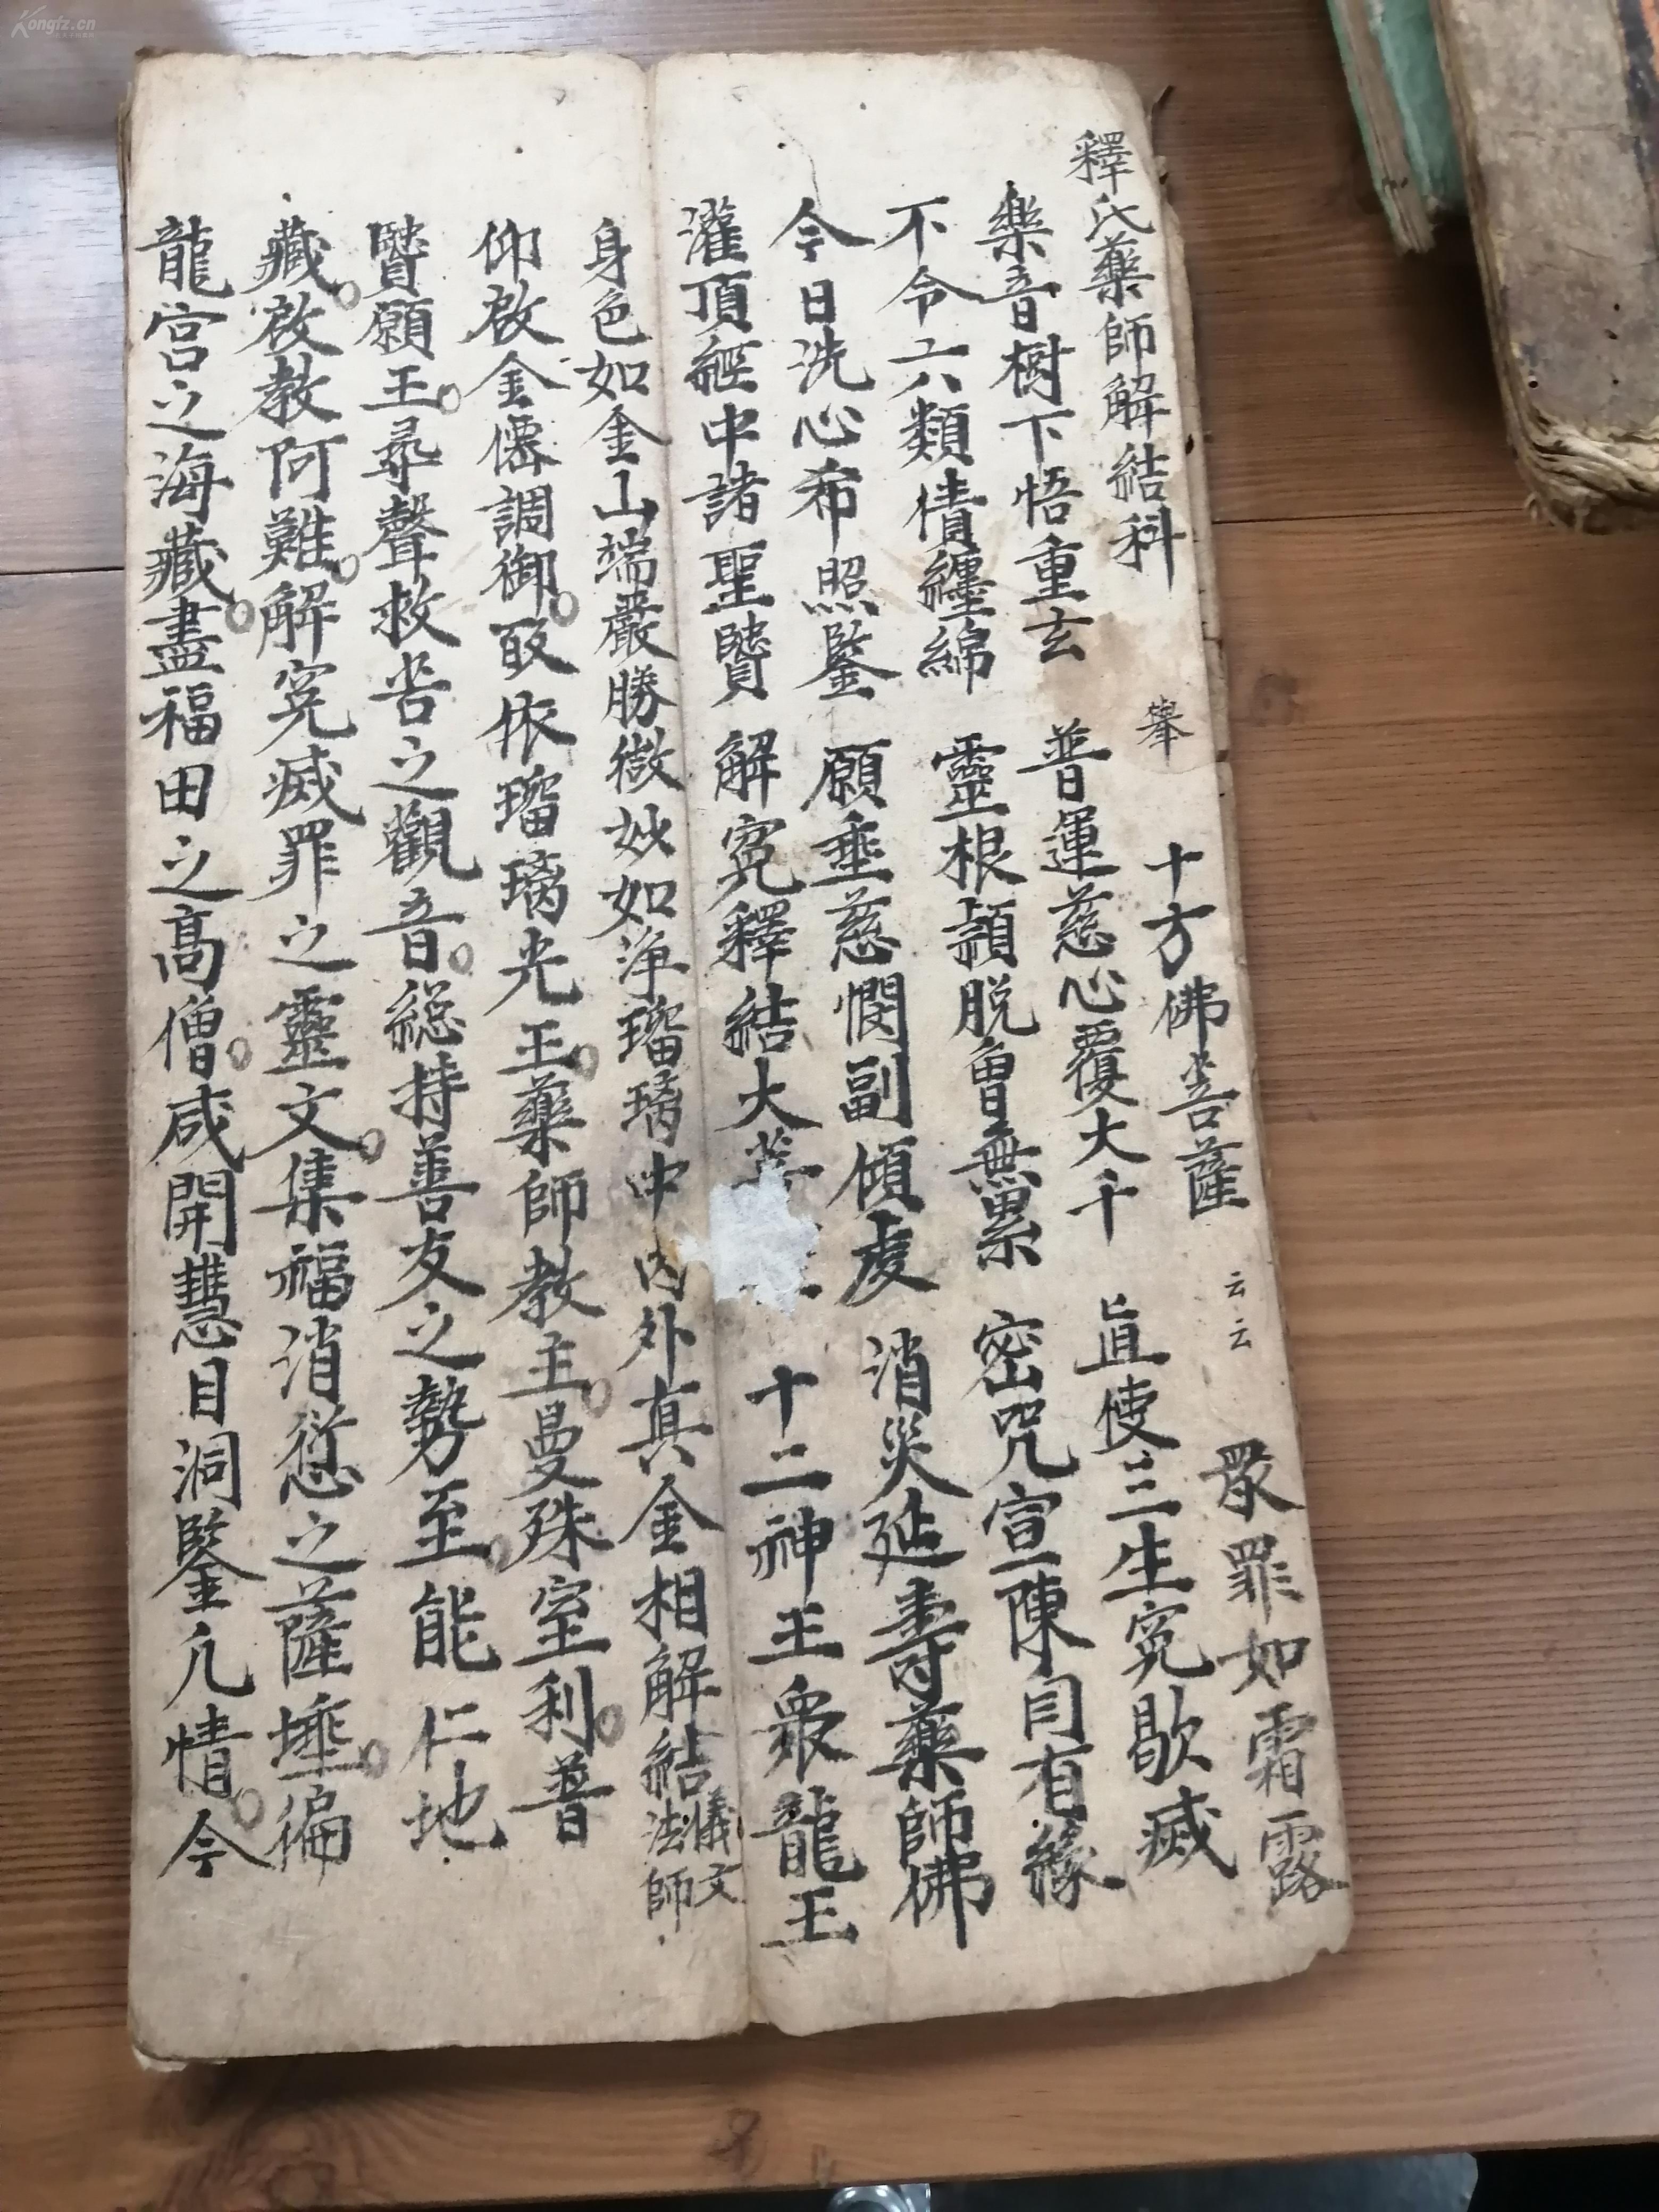 釋氏藥師解結科 舉 十方佛菩薩 云云 眾罪如霜露
樂音樹下悟重玄 普運慈心覆大千 直使三生冤歇滅
不令六類情纏綿 靈根頴脫曾無累 密咒宣陳自有緣
今日洗心希照鑒 願垂慈憫副傾虔 消災延壽藥師佛
灌頂經中諸聖賢 解冤釋結大菩 十二神王衆龍王
身色如金山端嚴勝微妙如淨瑠璃中內外真金相解結儀文法師
仰啟金僊調御皈依瑠璃光王藥師教主曼殊室利普
賢願王尋聲救苦之觀音總持善友之勢至能仁地
藏啟教阿難解冤滅罪之靈文集福消愆之薩埵徧
龍宮之海藏盡福田之高僧咸開慧目洞鑒凡情今
Kongfz.cn